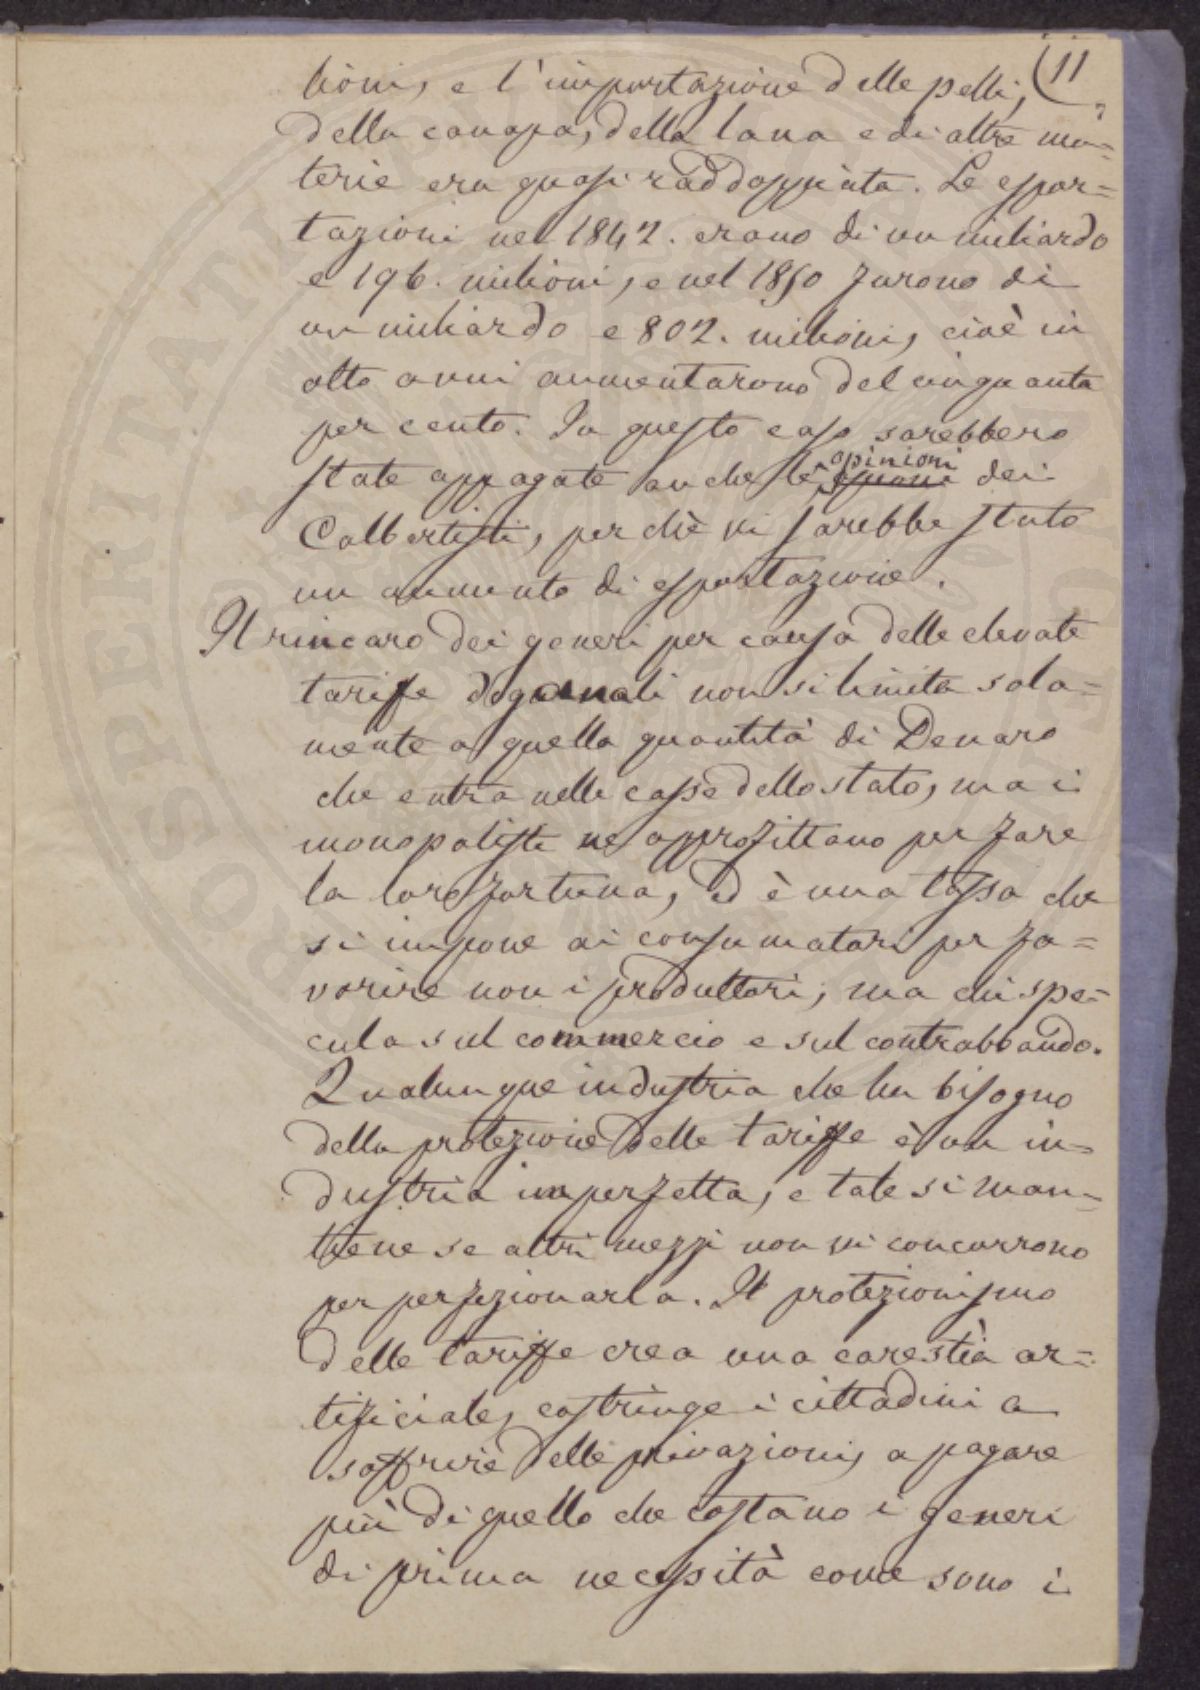 11
lioni, e l'importazione delle pelli,
della canapa, della lana e di altre ma=
terie era quasi raddoppiata. Le espor=
tazioni nel 1842. erano di un miliardo
e 196. milioni, e nel 1850 furono di
un miliardo e 802. milioni, cioè in
otto anni aumentarono del cinquanta
per cento. In questo caso sarebbero
opinioni
state appagate anche le dei
Colbertisti, perchè vi sarebbe stato
un aumento di esportazione.
Il rincaro dei generi per causa delle elevate
tariffe doganali non si limita sola=
mente a quella quantità di Denaro
che entra nelle casse dello stato, ma i
monopolisti ne approfittano per fare
la loro fortuna, ed è una tassa che
si impone ai consumatori per fa=
vorire non i produttori, ma chi spe=
cula sul commercio e sul contrabbando.
Qualunque industria che ha bisogno
della protezione delle tariffe è un in=
dustria imperfetta, e tale si man=
tiene se altri mezzi non vi concorrono
per perfezionarla. Il protezionismo
delle tariffe crea una carestia ar=
tificiale, costringe i cittadini a
soffrire delle privazioni, a pagare
più di quello che costano i generi
di prima necessità come sono i
PROSPERITATI PUBLICAE AUGENDAE